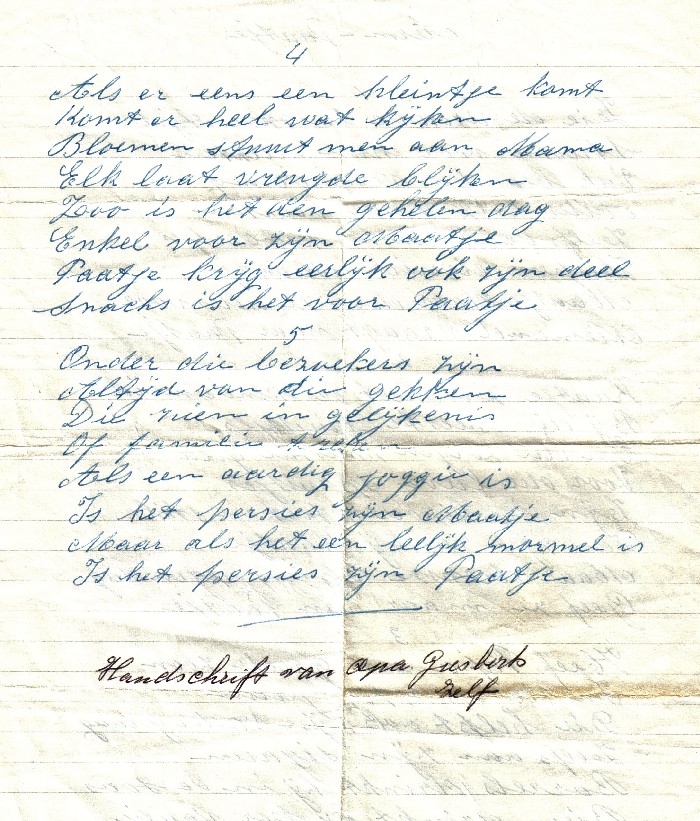 4
Als er eens een kleintje komt
Komt er heel wat kijken
Bloemen stuurt men aan Mama
Elk laat vreugde blijken
Zoo is het den geheelen dag
Enkel voor zijn Maatje
Paatje krijg eerlijk ook zijn deel
Snachs is het voor Paatje
5
Onder die bezoekers zijn
Altijd van die gekken
Die zien in gelijkenis
Of familie trekken
Als een aardig joggie is
Is het persies zijn Maatje
Maar als het een leelijk mormel is
Is het persies zijn Paatje
Handschrift van opa
zelf